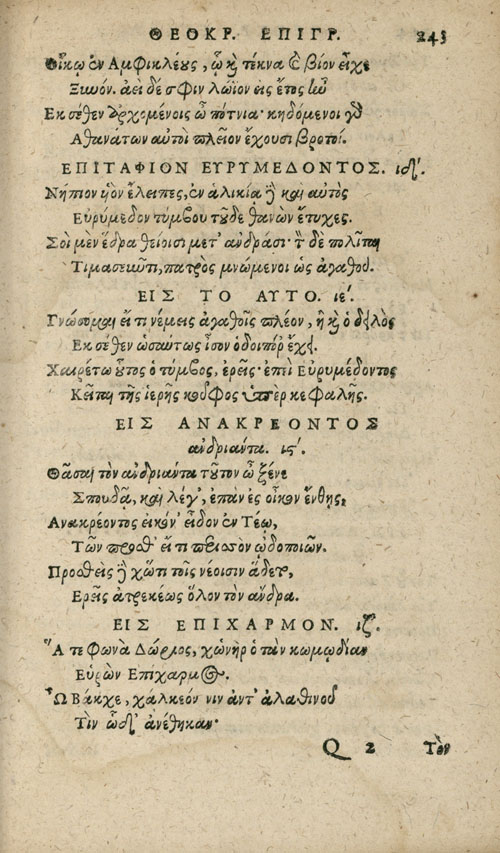 ΘΕΟΚΡ. ΕΠΙΓΡ. 243
Οἴκῳ ἐν Ἀμφικλέους, ᾧ καὶ τέκνα καὶ βίον εἶχε
Ξυνόν. ἀεὶ δέ σφιν λώϊον εἰς ἔτος ἦν
Ἐκ σέθεν ἀρχομένοις ὦ πότνια· κηδόμενοι γὰρ
Ἀθανάτων αὐτοὶ πλεῖον ἔχουσι βροτοί.
ΕΠΙΤΑΦΙΟΝ ΕΥΡΥΜΕΔΟΝΤΟΣ. ιδ΄.
Νήπιον υἱὸν ἔλειπες, ἐν ἁλικίᾳ δὲ καὶ αὐτὸς
Εὐρύμεδον τύμβου τοῦδε θανὼν ἔτυχες.
Σοὶ μὲν ἕδρα θείοισι μετ' ἀνδράσι· τὸν δὲ πολῖται
Τιμασεῦντι, πατρὸς μνώμενοι ὡς ἀγαθοῦ.
ΕΙΣ ΤΟ ΑΥΤΟ. ιε΄.
Γνώσομαι εἴ τι νέμεις ἀγαθοῖς πλέον, ἢ καὶ ὁ δειλὸς
Ἐκ σέθεν ὡσαύτως ἶσον ὁδοιπόρ' ἔχει.
Χαιρέτω οὗτος ὁ τύμβος, ἐρεῖς· ἐπεὶ Εὐρυμέδοντος
Κεῖται τῆς ἱερῆς κοῦφος ὑπὲρ κεφαλῆς.
ΕΙΣ ΑΝΑΚΡΕΟΝΤΟΣ
ἀνδριάντα. ις΄.
Θᾶσαι τὸν ἀνδριάντα τοῦτον ὦ ξένε
Σπουδᾷ, καὶ λέγ', ἐπὰν ἐς οἶκον ἔνθῃς,
Ἀνακρέοντος εἰκόν' εἶδον ἐν Τέῳ,
Τῶν πρόσθ' εἴ τι περισσὸν ᾠδοποιῶν.
Προσθεὶς δὲ χὤτι τοῖς νέοισιν ἅδετο,
Ἐρεῖς ἀτρεκέως ὅλον τὸν ἄνδρα.
ΕΙΣ ΕΠΙΧΑΡΜΟΝ. ιζ΄.
Ἅ τε φωνὰ Δώριος, χὠνὴρ ὁ τὰν κωμῳδίαν
Εὑρὼν Ἐπίχαρμος.
Ὦ Βάκχε, χάλκεόν νιν ἀντ' ἀλαθινοῦ
Τὶν ὧδ' ἀνέθηκαν·
Q 2 Τὸν